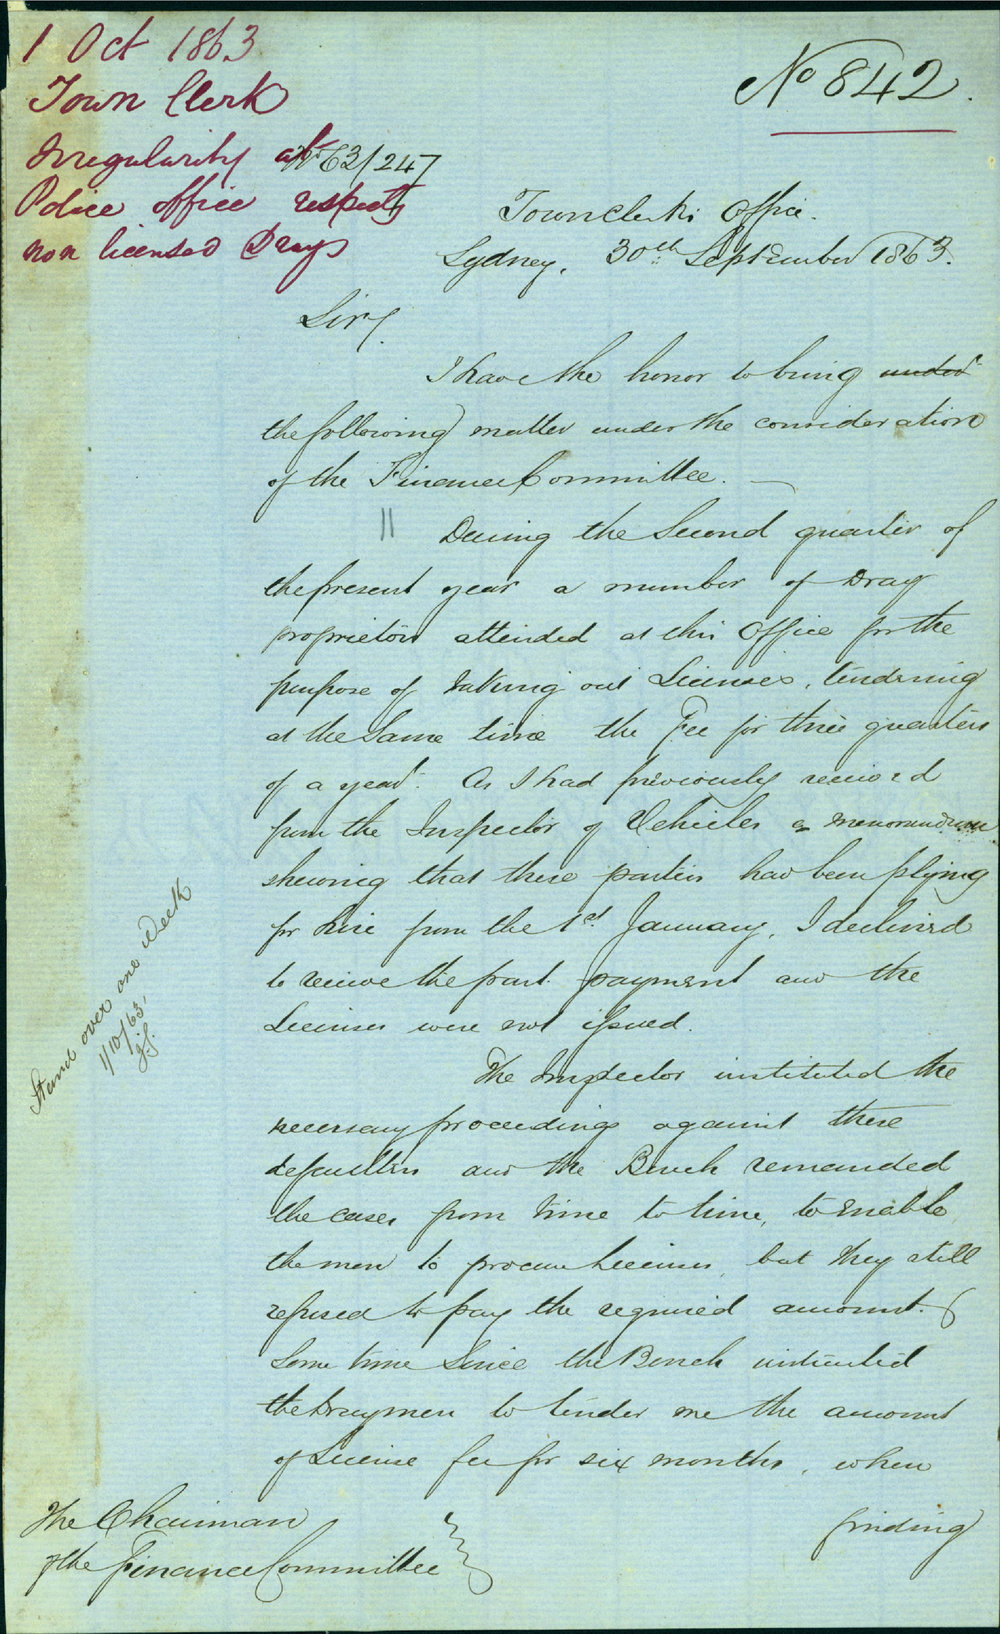 1 Oct 1863
Town Clerk
Irregularity at
Police office respectg
non licensed Drays
No 63/247
No 842.
Town Clerk's Office.
Sydney, 30th September 1863.
Sir,
I have the honor to bring under
the following matter under the consideration
of the Finance Committee. —
During the Second quarter of
the present year a number of Dray
proprietors attended at this Office for the
purpose of taking out Licenses, tendering
at the same time the Fee for three quarters
of a year. As I had previously received
from the Inspector of Vehicles a memorandum
shewing that these parties had been plying
for hire from the 1st January, I declined
to receive the part payment and the
Licenses were not issued.
The Inspector instituted the
necessary proceedings against these
defaulters and the Bench remanded
the cases from time to time, to enable
the men to procure Licenses, but they still
refused to pay the required amount.
Some time since the Bench instructed
the Draymen to tender me the amount
of License fee for six months, when
finding
The Chairman
of the Finance Committee
Stand over one Week
1/10/63.